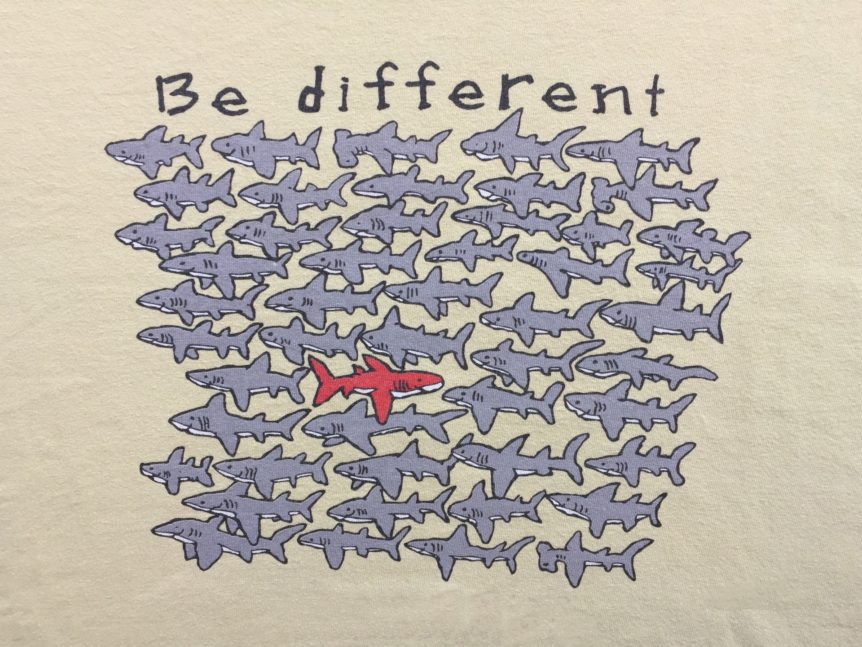 Be different